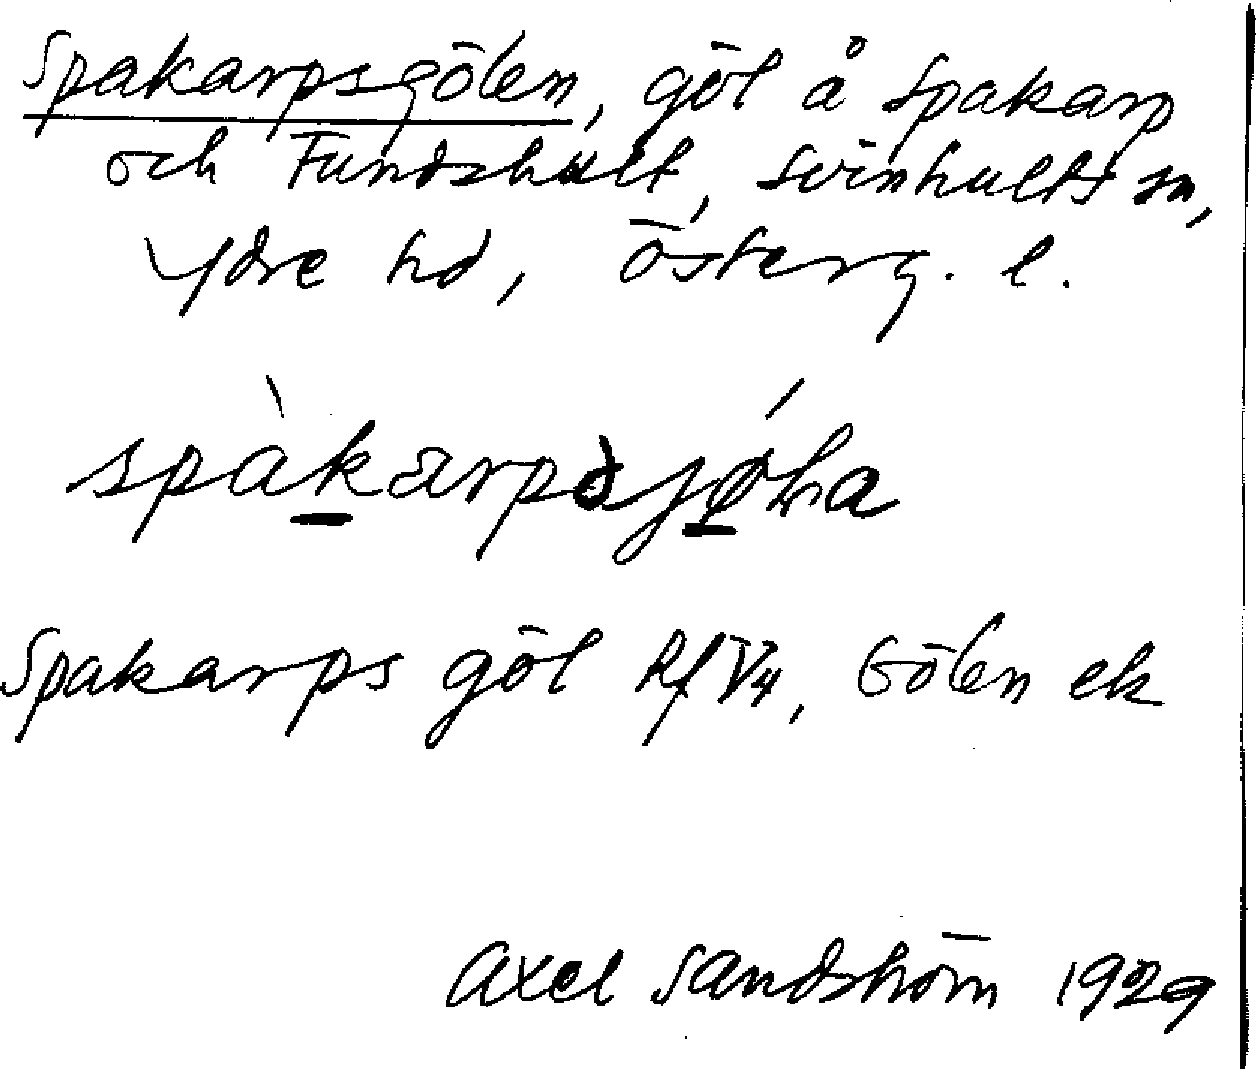 Spakarpsgölen, göl å Spakarp
och Fundshult, Svinhults sn,
Ydre hd, Österg. l.
Spakarps göl Rf V4, Gölen ek
Axel Sandström 1929